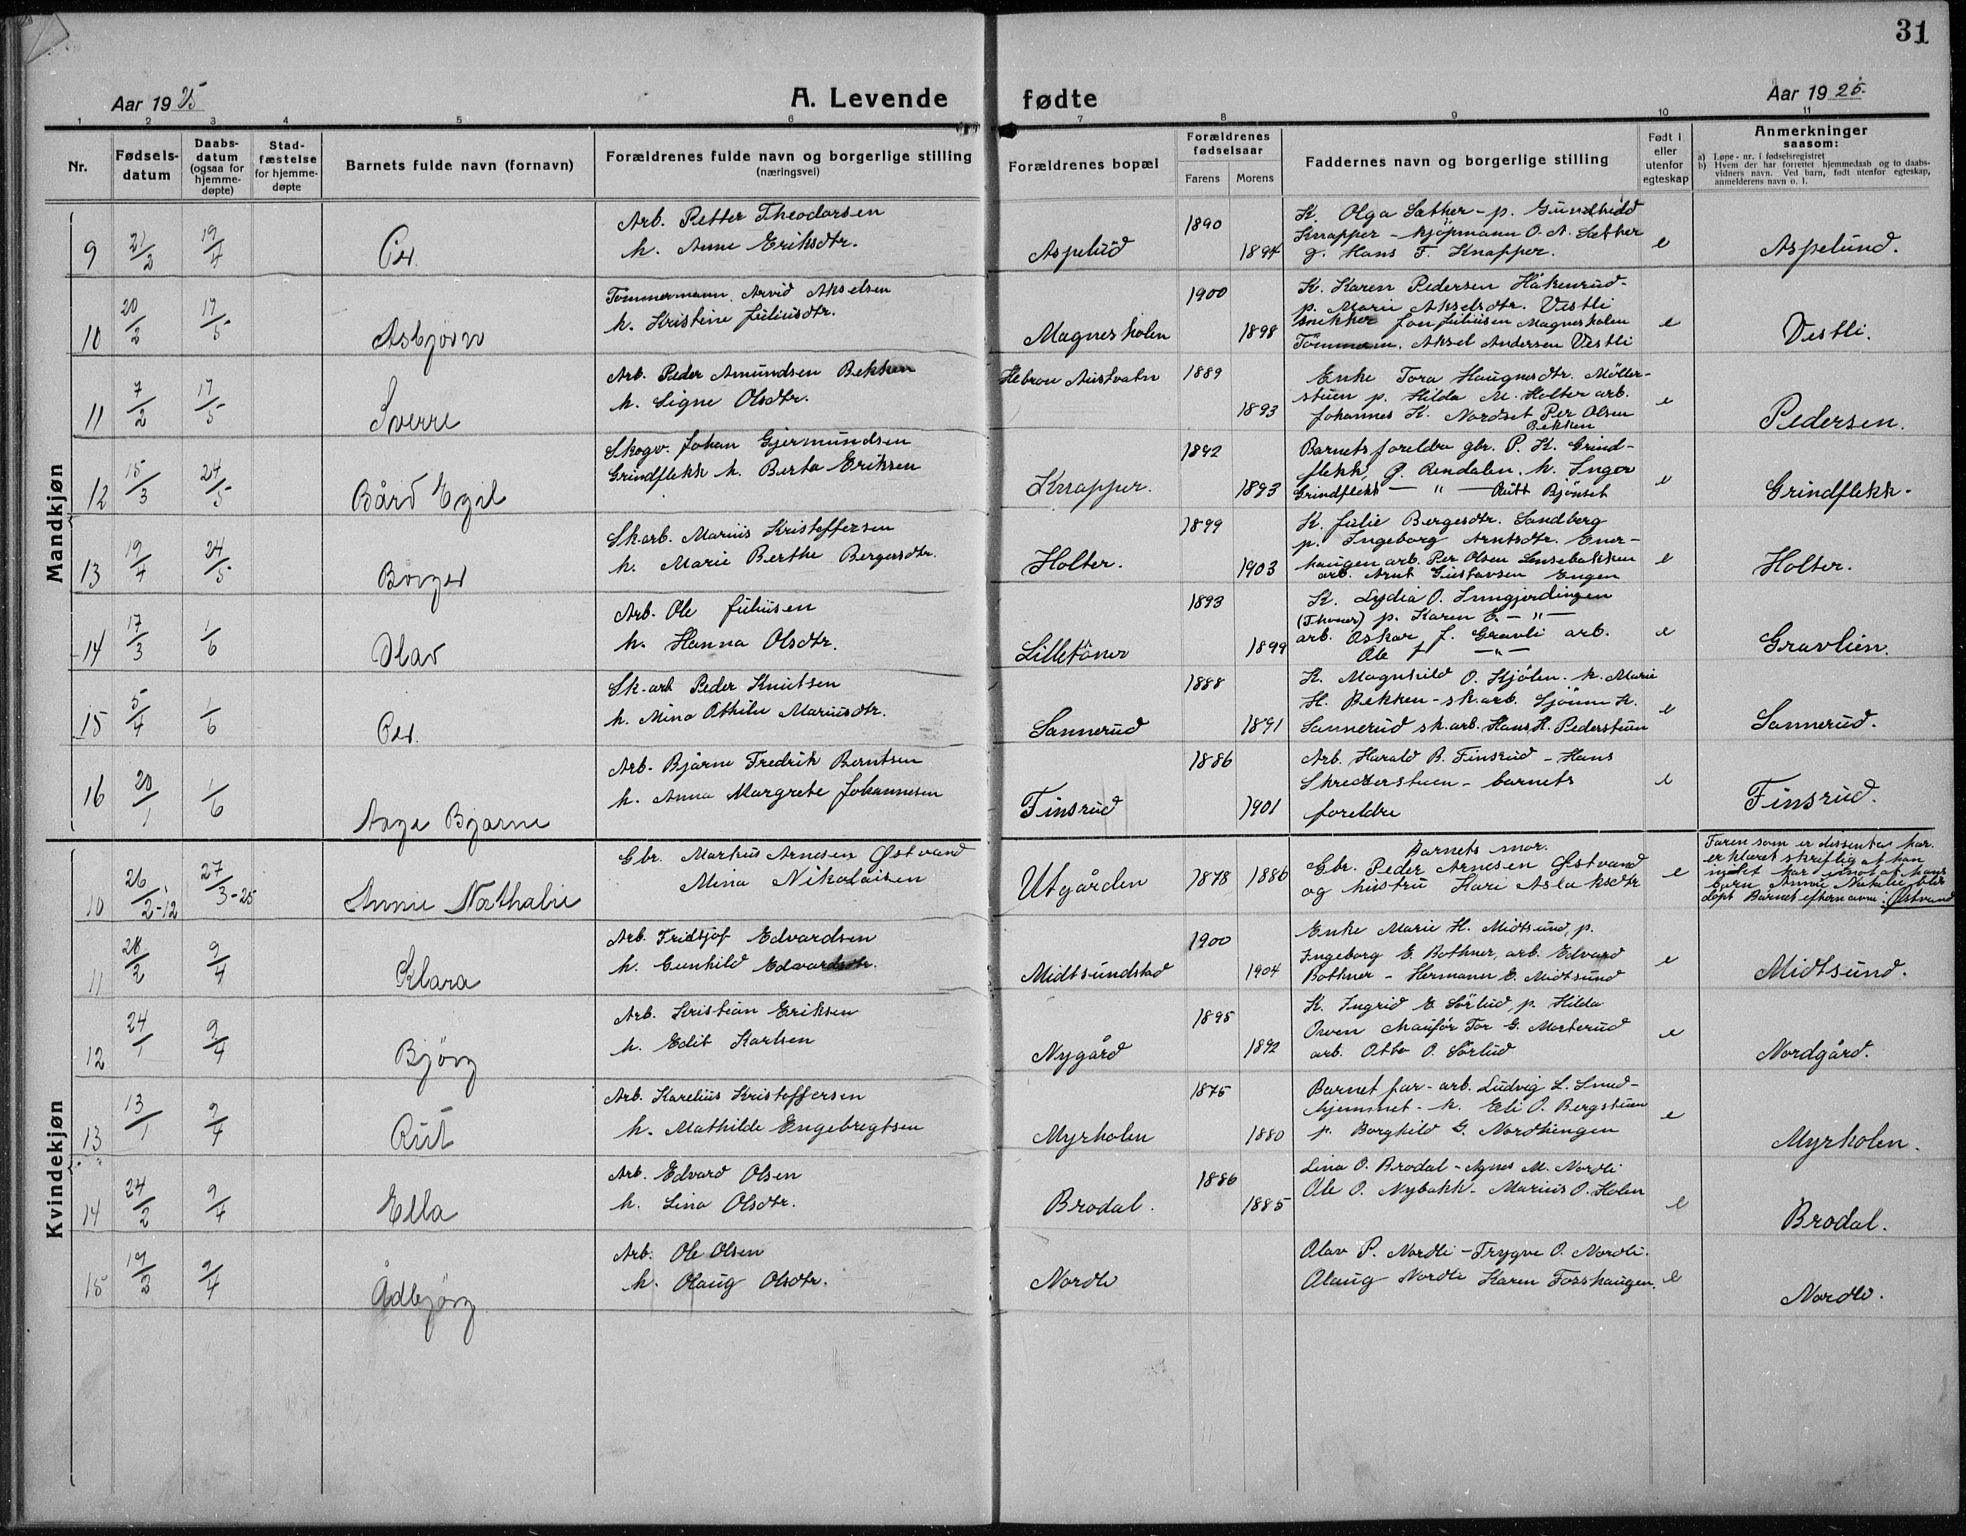 31
Aar 1925 A. Levende fødte Aar 1925.
1 2 3 4 5 6 7 8 9 10 11
Nr. Fødselsdatum Daabsdatum (ogsaa for hjemmedøpte) Stadfæstelse for hjemmedøpte Barnets fulde navn (fornavn) Forældrenes fulde navn og borgerlige stilling (næringsvei) Forældrenes bopæl Forældrenes fødselsaar Farens Morens Faddernes navn og borgerlige stilling Født i eller utenfor egteskap Anmerkninger saasom:
a) Løpe-nr. i fødselsregistret
b) Hvem der har forrettet hjemmedaab og to daabsvidners navn. Ved barn, født utenfor egteskap, anmelderens navn o. l.
Mandkjøn
9 21/2 19/4 Per.
Arb. Petter Theodorsen
h. Anne Eriksdtr.
Aspelud 1890 1894
K. Olga Sæther - p. Gundhild
Knapper - kjøpmann O. A. Sæther
g. Hans F. Knapper.
e Aspelund.
10 20/2 17/5 Asbjørn
Tømmermann. Arvid Akselsen
h. Kristine Juliusdtr.
Magnesholen 1900 1898
K. Karen Pedersen Håkenrud-
p. Marie Akselsdtr. Vestli
snekker Jon Juliusen Magnesholen
Tømmerm. Aksel Andersen Vestli
e Vestli.
11 7/2 17/5 Sverre
Arb. Peder Amundsen Bekken
h. Signe Olsdtr.
Hebron Austvatn 1889 1893
Enke Tora Haugnesdtr. Møller-
stuen p. Hilda M. Holter arb.
Johannes K. Nordset Per Olsen
Bekken
e Pedersen.
12 15/3 24/5 Bård Egil
Skogv. Johan Gjermundsen
Grindflekk h. Berta Eriksen
Knapper. 1892 1893
Barnets foreldre gbr. P. K. Grind-
flekk, G. Rendalen. h. Inger
Grindflekk — " — Rutt Bjønset
e Grindflekk.
13 19/4 24/5 Börger
Sk.arb. Marius Kristoffersen
h. Marie Berthe Bergersdtr.
Holter. 1899 1903
K. Julie Bergesdtr. Sandberg
p. Ingeborg Arntsdtr. Ener-
haugen arb. Per Olsen Lensebakken
arb. Arnt Gustavsen Engen
e Holter.
14 17/3 1/6 Olav
Arb. Ole Juliusen
h. Hanna Olsdtr.
Lilletöner 1893 1899
K. Lydia O. Lungjordingen
(Thoner) p. Karen E. — " —
arb. Oskar J. Gravli arb.
Ole J — " —
e Gravlien.
15 5/4 1/6 Per.
Sk.arb Peder Knutsen
h. Mina Othilie Mariusdtr.
Sannerud 1888 1891
K. Magnhild O. Kjölen. h. Marie
H. Bekken - sk.arb. Sjönm K.
Sannerud sk.arb. Hans H. Pederstuen
e Sannerud.
16 20/1 1/6 Aage Bjarne
Arb. Bjarne Fredrik Berntsen
h. Anna Margrete Johannesen
Finsrud 1886 1901
Arb. Harald B. Finsrud - Hans
Skredderstuen - barnets
foreldre
e Finsrud.
Kvindekjøn
10 26/2-12 27/3-25 Annie Nathalie
Gbr. Markus Arnesen Østvand
Mina Nikolaisen
Utgården 1878 1886
Barnets mor.
Gbr. Peder Arnesen Østvand
og hustru Kari Aslaksdtr
e
Faren som er dissenter har
erklæret skriftlig at han
intet har imot at hans
barn Annie Natalie blir
døpt Barnet efternavn: Østvand
11 28/2 9/4 Klara
Arb. Fridtjof Edvardsen
h. Gunhild Edvardsdtr.
Midtsundstad 1900 1904
Enke Marie H. Midtsund, p.
Ingeborg E. Bothner, arb. Edvard
Bothner - Hermann E. Midtsund
e Midtsund.
12 24/1 9/4 Bjørg
Arb. Kristian Eriksen
h. Edit Karlsen
Nygård 1895 1892
K. Ingrid E Sörlud, p. Hilda
Owen Chauför Tor G. Morterud
arb. Otto O. Sörlud
e Nordgård.
13 13/1 9/4 Rut
Arb. Karelius Kristoffersen
h. Mathilde Engebregtsen
Myrholen 1875 1880
Barnet far - arb. Ludvig L. Smed-
hjemmet - h. Eli O. Bergstuen
p. Borghild G. Nordhengen
e Myrholen.
14 24/2 9/4 Ella
Arb. Edvard Olsen
h. Lina Olsdtr.
Brodal. 1886 1885
Lina O. Brodal - Agnes M. Nordli
Ole O. Nybakk - Marius O. Holen
e Brodal.
15 19/3 9/4 Ådbjørg
Arb. Ole Olsen
h. Olaug Olsdtr.
Nordli
Olav P. Nordli - Trygve O. Nordli.
Olaug Nordli Karen Forshaugen.
e Nordli.